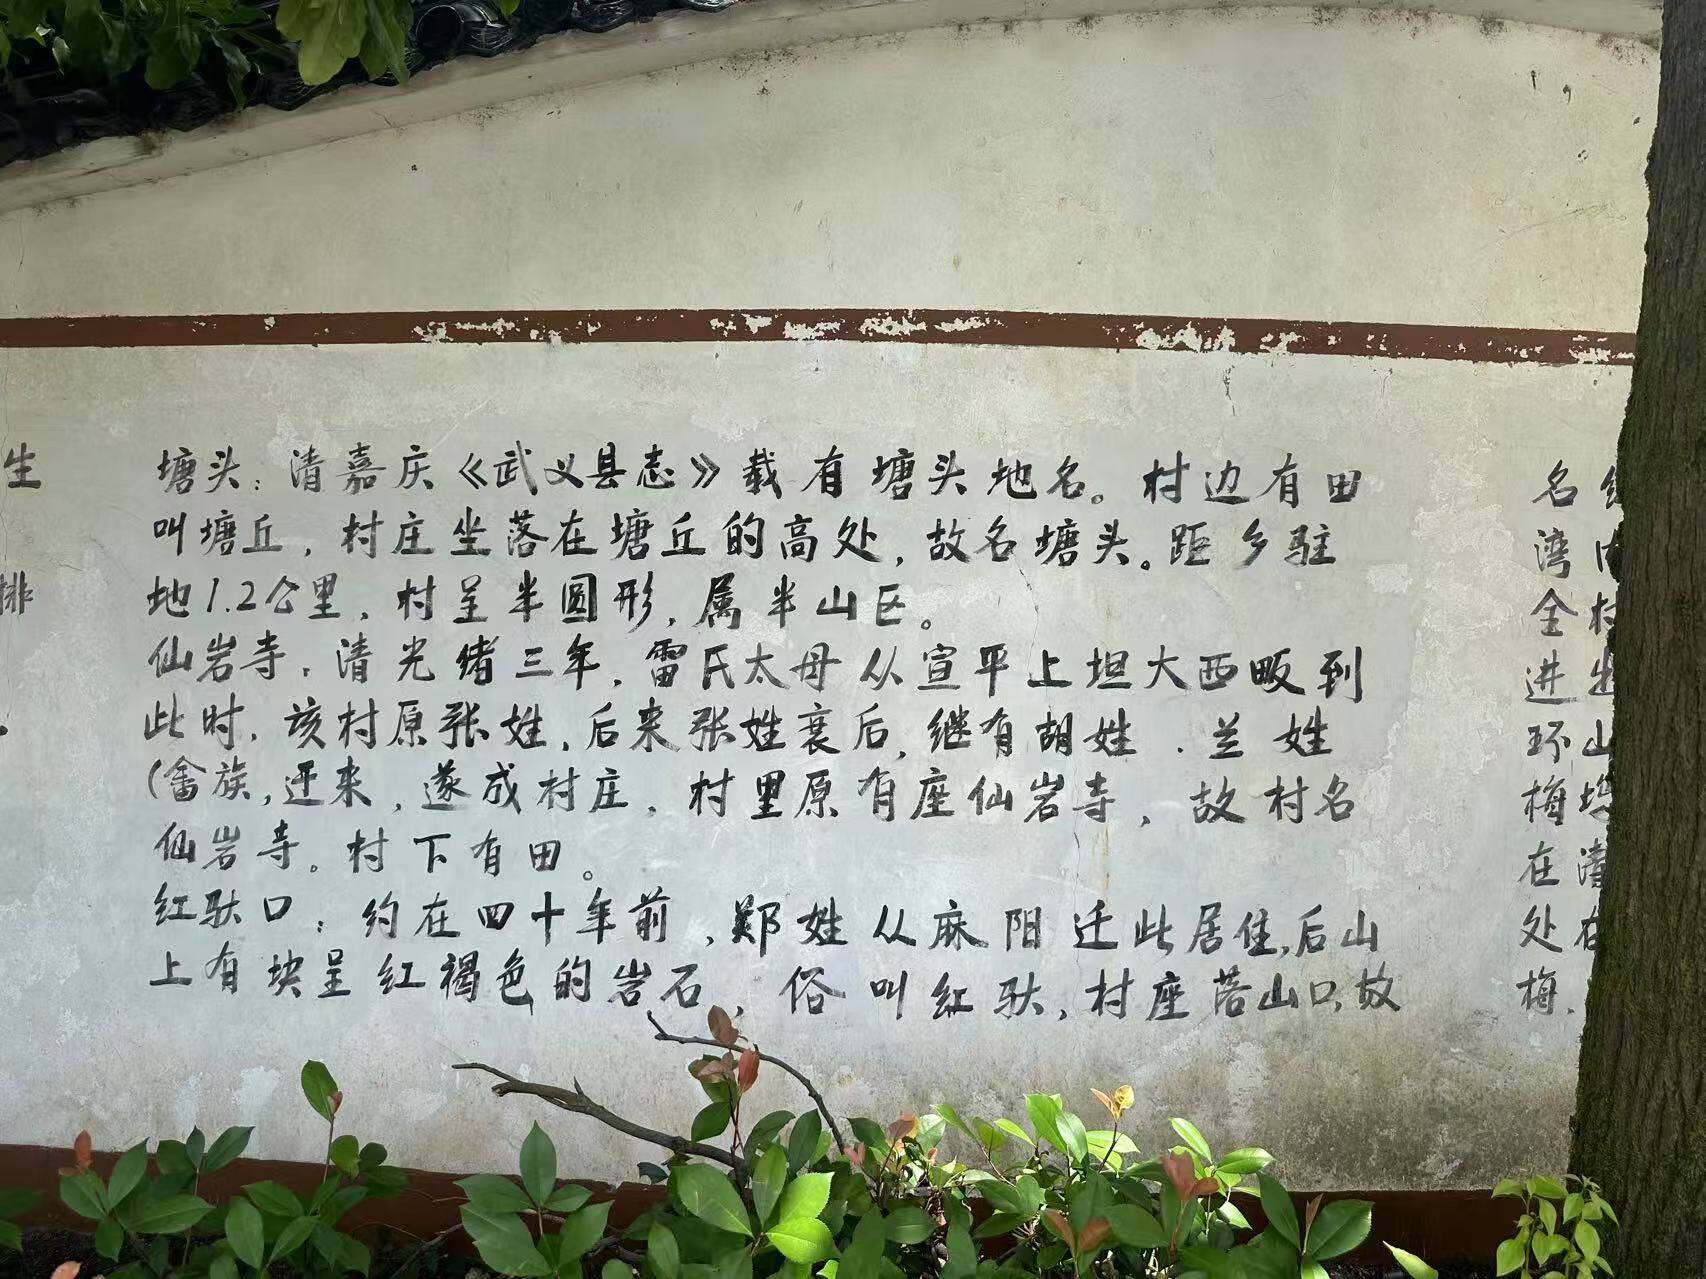 生
排
塘头：清嘉庆《武义县志》载有塘头地名。村边有田
叫塘丘，村庄坐落在塘丘的高处，故名塘头。距乡驻
地1.2公里，村呈半圆形，属半山区。
仙岩寺，清光绪三年，雷氏太母从宣平上坦大西畈到
此时，该村原张姓，后来张姓衰后，继有胡姓．兰姓
(畲族，迁来，遂成村庄，村里原有座仙岩寺，故村名
仙岩寺。村下有田。
红驮口：约在四十年前，郑姓从麻阳迁此居住，后山
上有块呈红褐色的岩石，俗叫红驮，村座落山口，故
名
湾
全村
进
环山
梅
在
处在
梅，